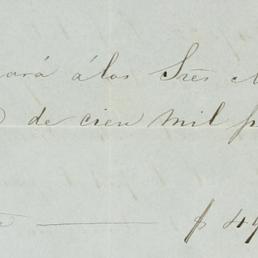 ará á los Srês
de cien mil p
$ 49